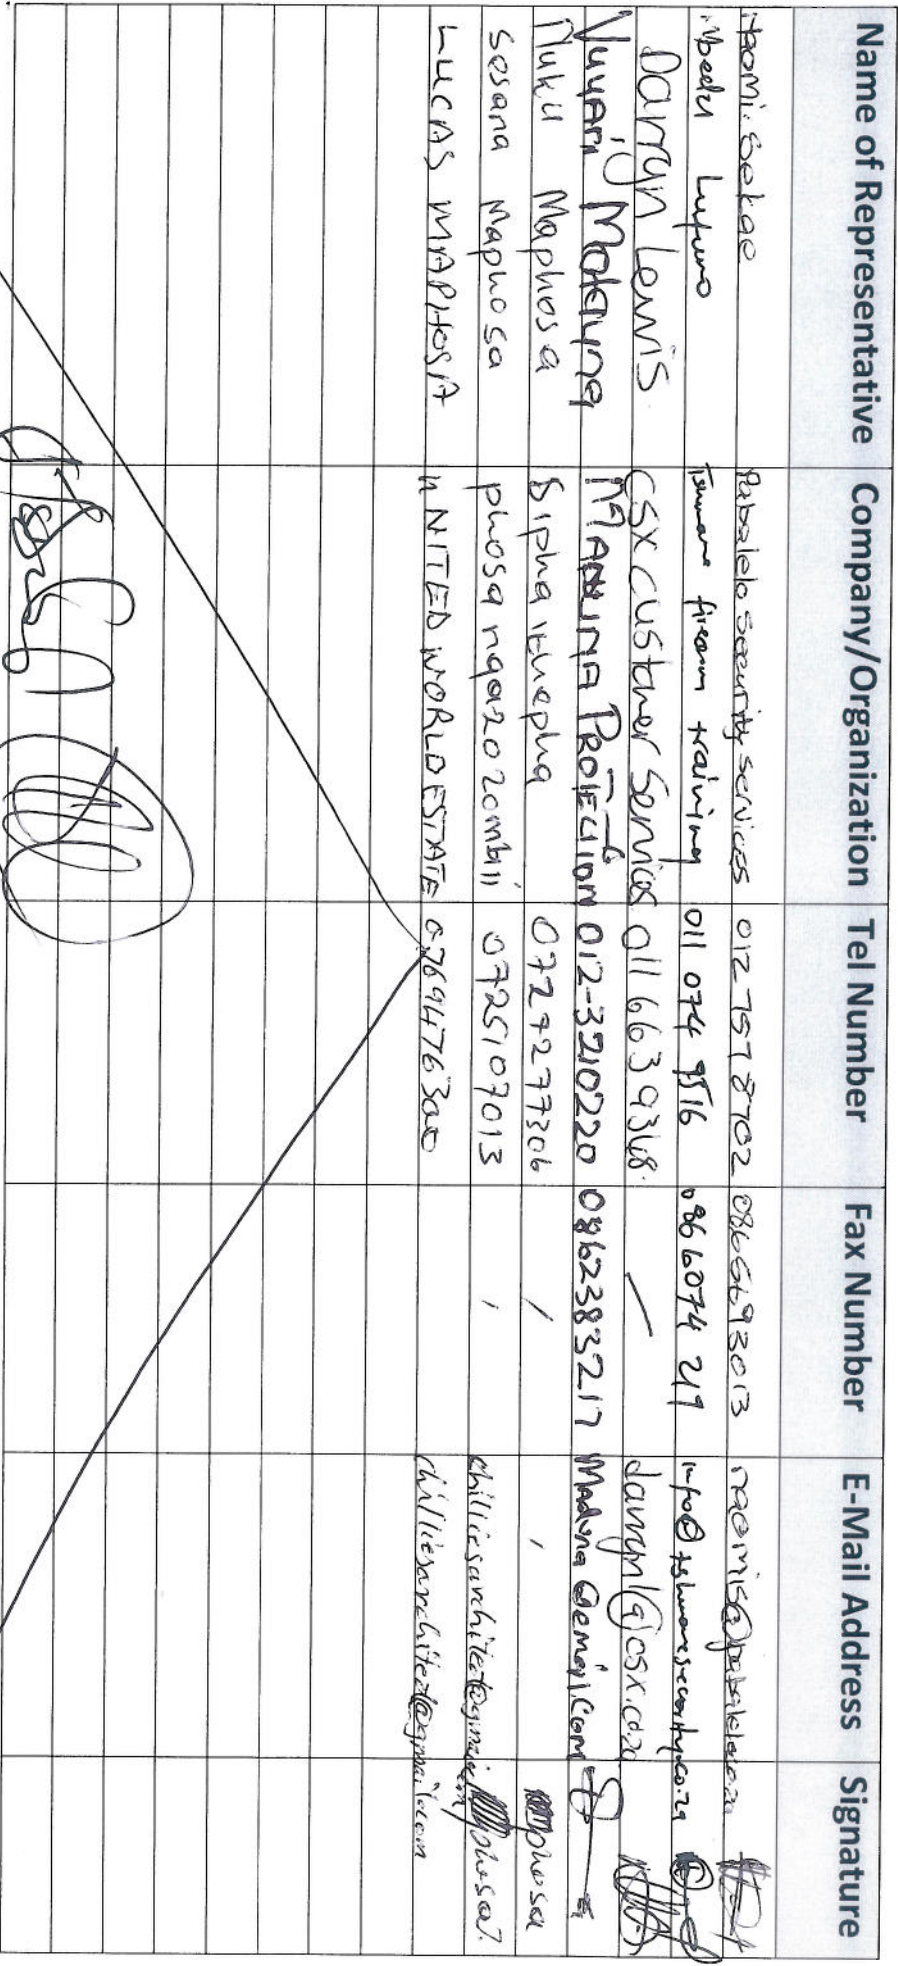 Name of Representative Company/Organization Tel Number Fax Number E-Mail Address Signature
Naomi Sekao Pabalelo security services 012 757 8702 0865693013 naomis@pabalelo.co.za
Mbedu Lufuno Tshwane firearm training 011 074 9516 086 6074 219 info@tshwanesecurity.co.za
Darryn Lewis CSX customer Services 011 663 9348 darrynl@csx.co.za
Vuyani Madyna MADUNA PROTECTION 012-3210220 0862383217 Maduna@email.com
Nuku Maphosa Sipha ikhepha 0727277306
Sesana Maphosa phosa nqa2020mbii 0725107013 chilliesarchitect@gmail.com
LUCAS MAPHOSA UNITED WORLD ESTATE 0769476300 chilliesarchitect@gmail.com